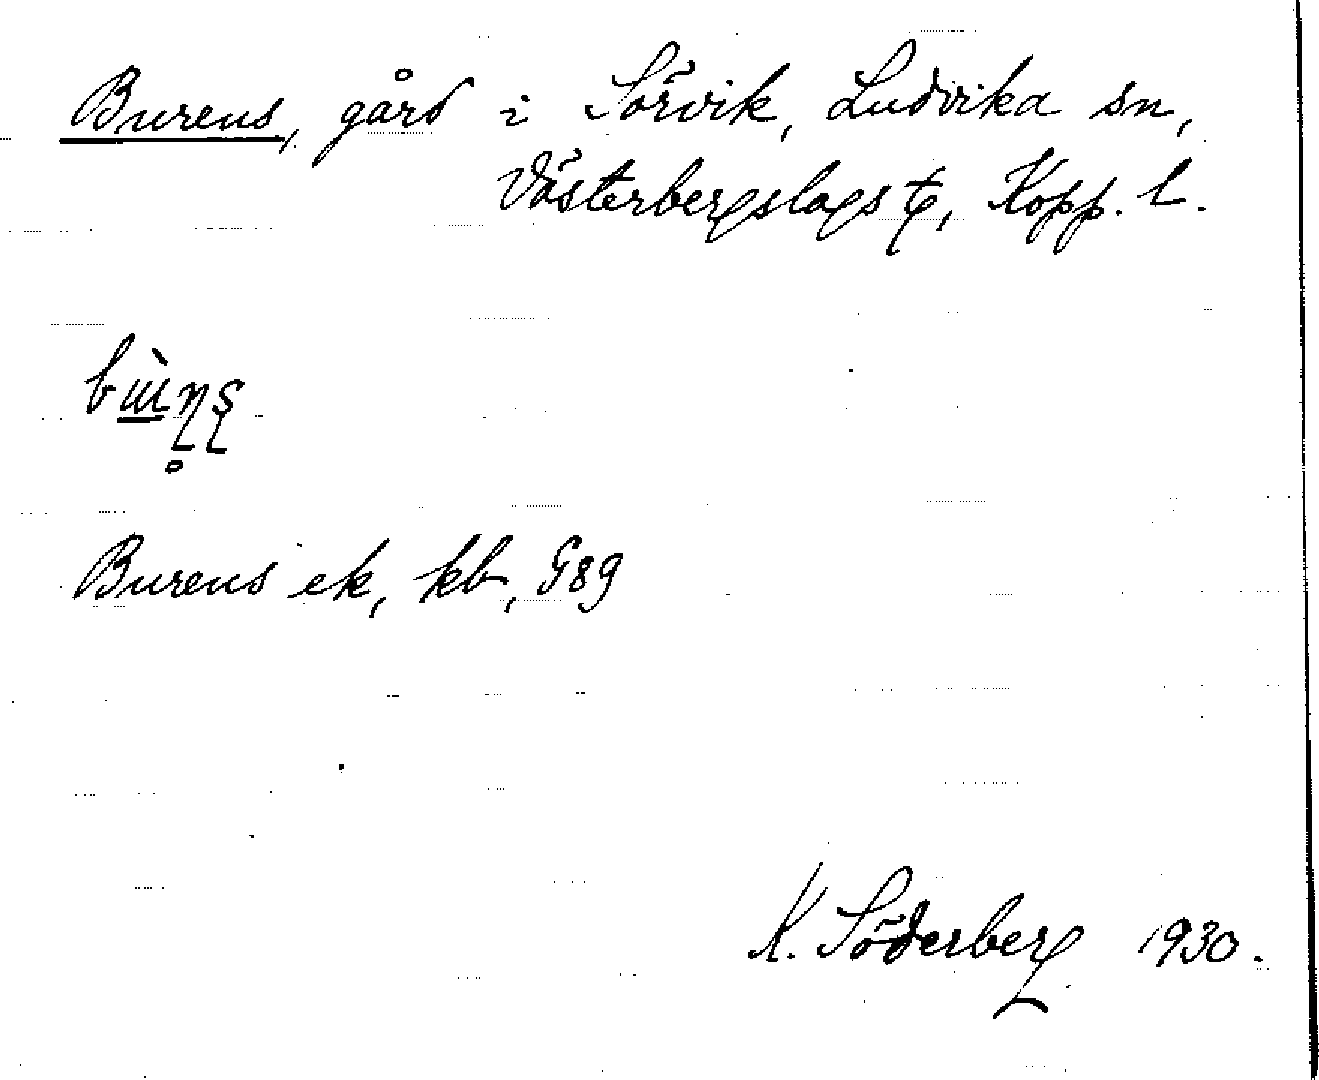 Burens, gård i Sörvik, Ludvika sn,
Västerbergslags t, Kopp. l.
Burens ek, kb, G89
K. Söderberg 1930.